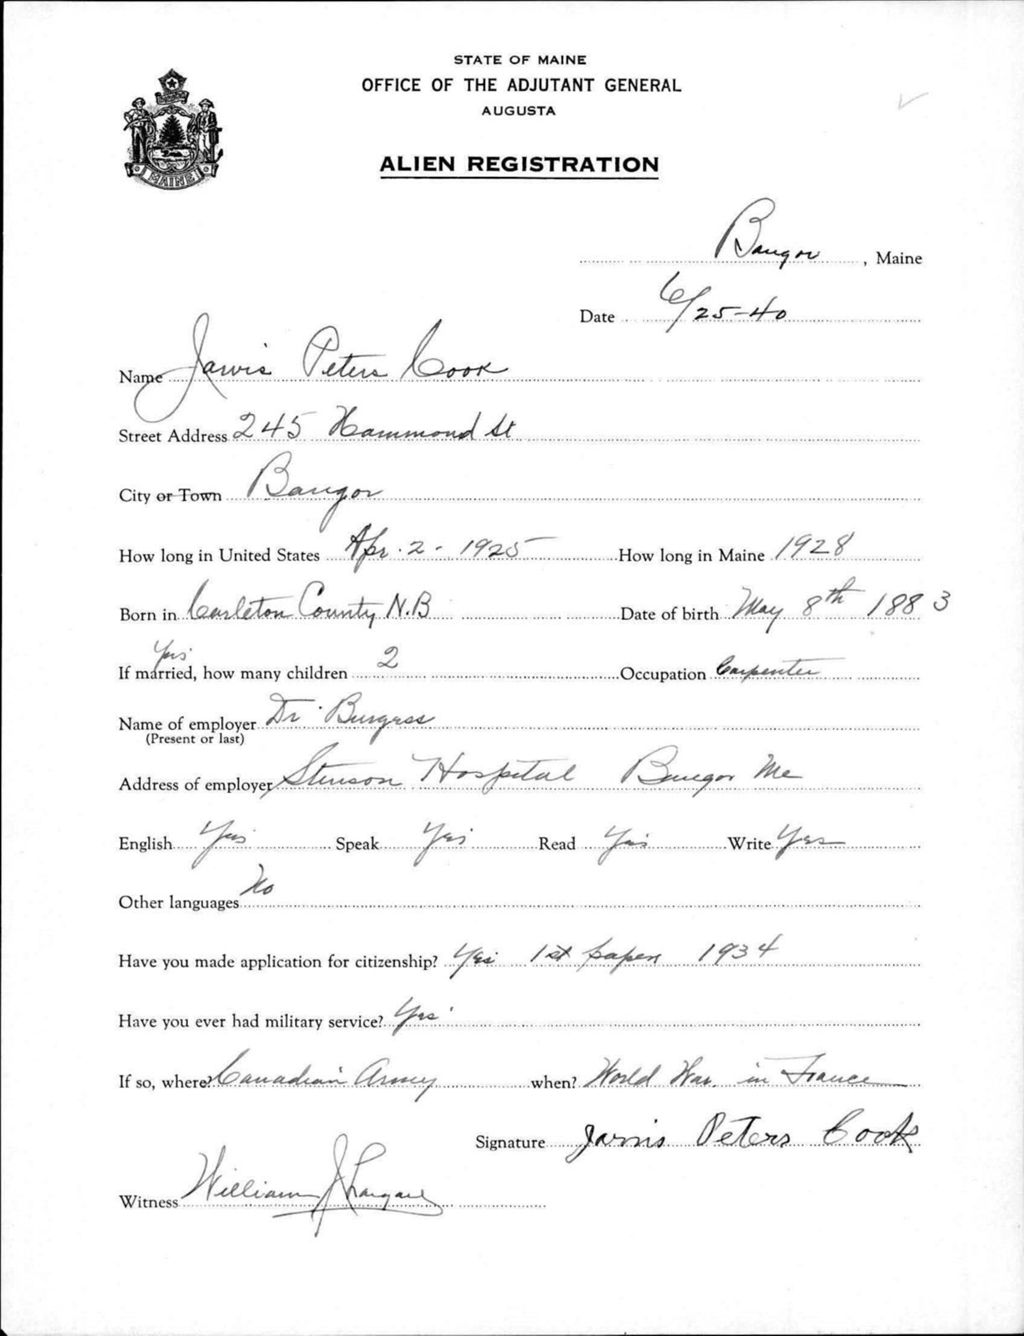 STATE OF MAINE
OFFICE OF THE ADJUTANT GENERAL
AUGUSTA
ALIEN REGISTRATION
MAINE
Bangor, Maine
Date 6/25-40
Name Jarvis Peters Cook
Street Address 245 Hammond St
City or Town Bangor
How long in United States Apr. 2 - 1925 How long in Maine 1928
Born in Carleton County N.B Date of birth May 8th 1883
Yes
If married, how many children 2 Occupation Carpenter
Name of employer Dr. Burgess
(Present or last)
Address of employer Stinson Hospital Bangor Me
English Yes Speak Yes Read Yes Write Yes
Other languages No
Have you made application for citizenship? Yes 1st papers 1934
Have you ever had military service? Yes
If so, where? Canadian Army when? World War. in France
Signature Jarvis Peters Cook
Witness William J